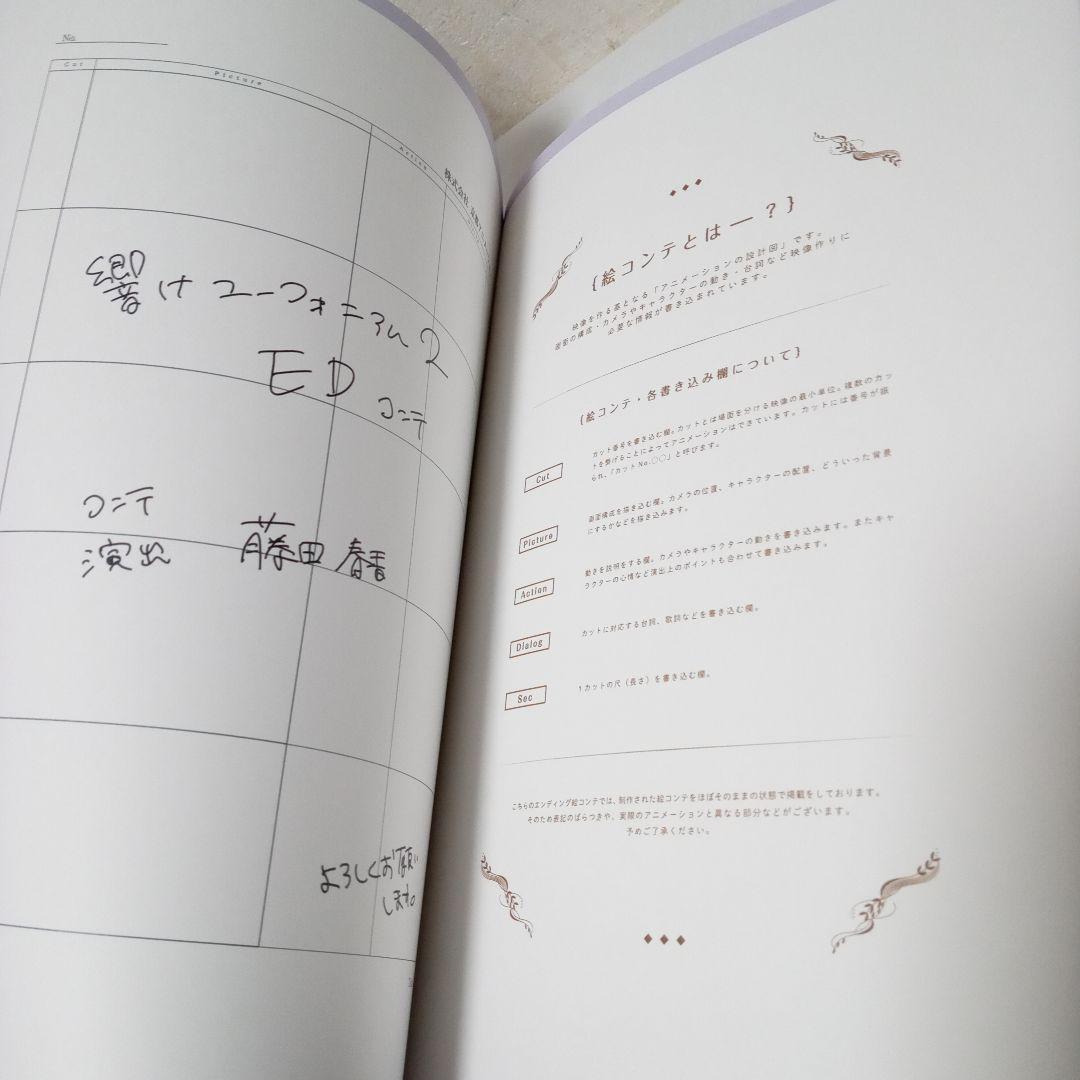 No.
Cut
Picture
Action
株式会社 京都アニ
響け ユーフォニアム 2
ED コンテ
コンテ
演出 藤田 春香
よろしくお願い
します。
{絵コンテとは―?}
映像を作る基となる「アニメーションの設計図」です。
画面の構成・カメラやキャラクターの動き・台詞など映像作りに
必要な情報が書き込まれています。
{絵コンテ・各書き込み欄について}
Cut
カット番号を書き込む欄。カットとは場面を分ける映像の最小単位。複数のカッ
トを繋げることによってアニメーションはできています。カットには番号が振
られ、「カットNo.○○」と呼びます。
Picture
画面構成を描き込む欄。カメラの位置、キャラクターの配置、どういった背景
にするかなどを描き込みます。
Action
動きを説明をする欄。カメラやキャラクターの動きを書き込みます。またキャ
ラクターの心情など演出上のポイントも合わせて書き込みます。
Dialog
カットに対応する台詞、歌詞などを書き込む欄。
Sec
1カットの尺（長さ）を書き込む欄。
こちらのエンディング絵コンテでは、制作された絵コンテをほぼそのままの状態で掲載をしております。
そのため表記のばらつきや、実際のアニメーションと異なる部分などがございます。
予めご了承ください。